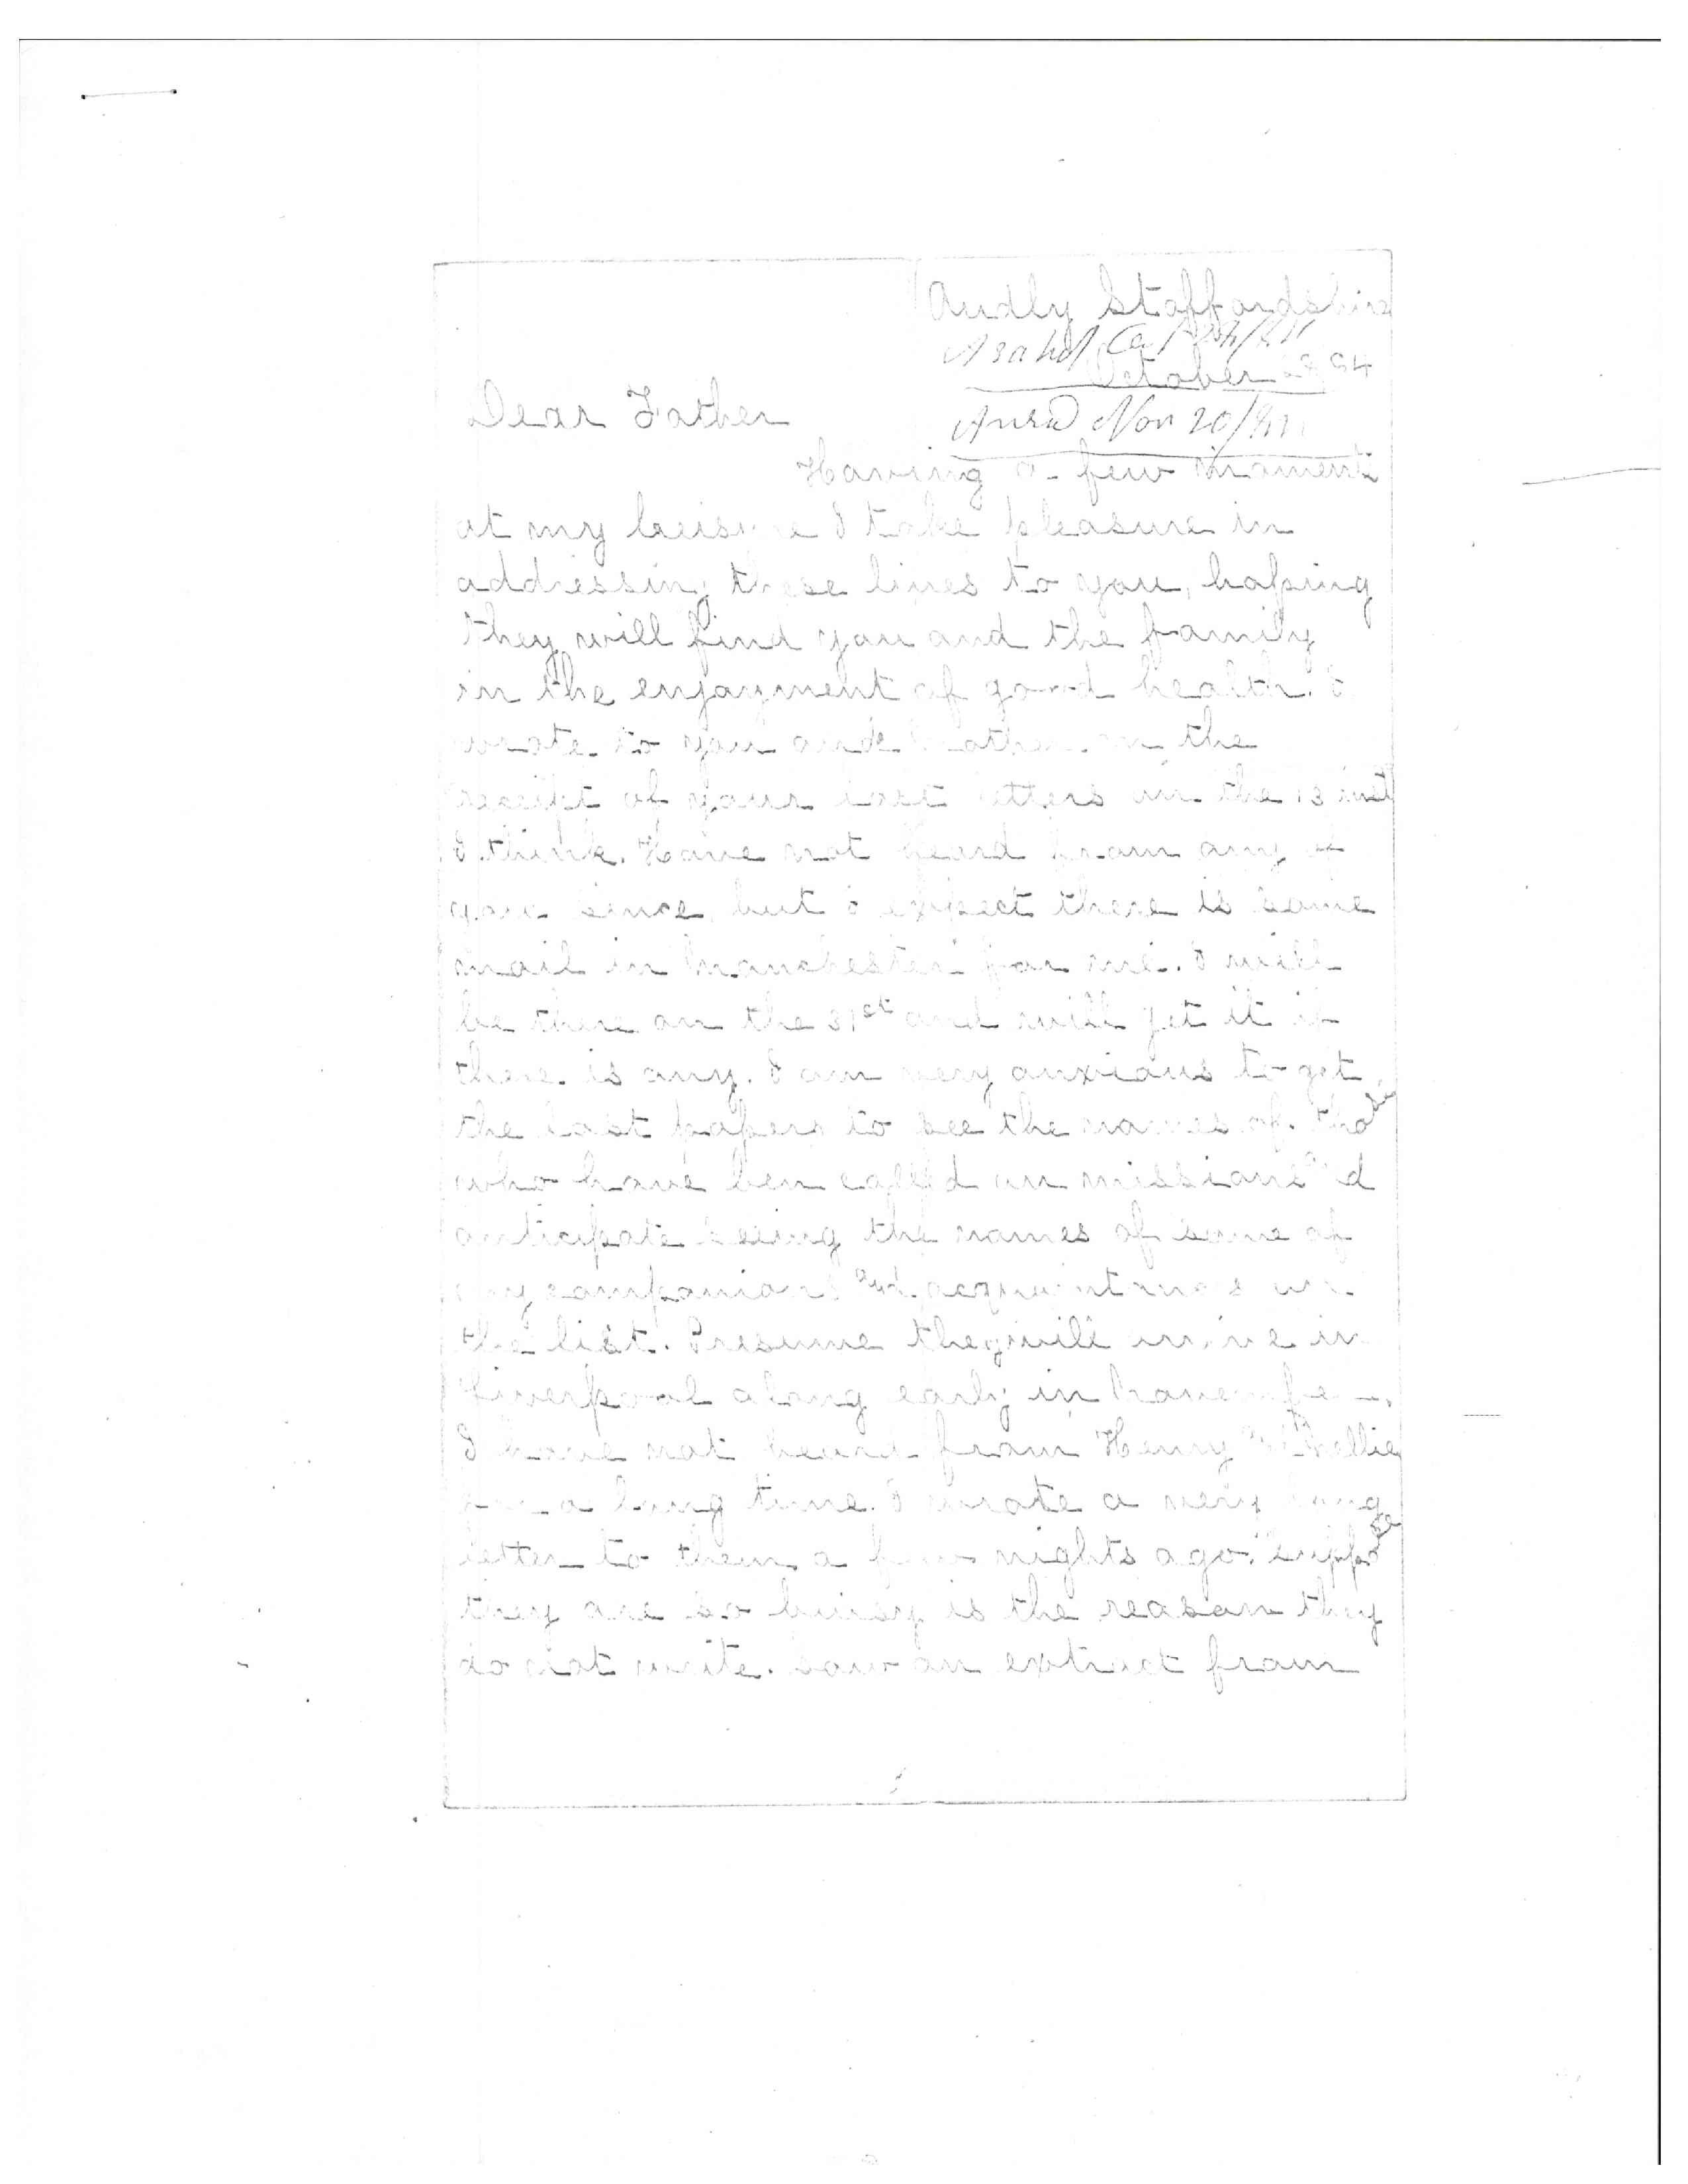 Audly Staffordshire
October
Dear Father
Answd Nov 20/
Having a few moments
at my leisure I take pleasure in
addressing these lines to you, hoping
they will find you and the family
in the enjoyment of good health. I
wrote to you and on the
receipt of your last letters on the 13 inst
I think. Have not heard from any of
you since, but I expect there is some
mail in Manchester for me. I will
be there on the 31st and will get it if
there is any. I am very anxious to get
the last papers to see the names of those
who have ben called on missions
anticipate seeing the names of some of
my companions acquintances on
the list. Presume they will arrive in
Liverpool along early in
I have not heard from Henry & Nellie
for a long time. I wrote a very long
letter to them a few nights ago. Suppose
they are so buisy is the reason they
do not write. Saw an extract from